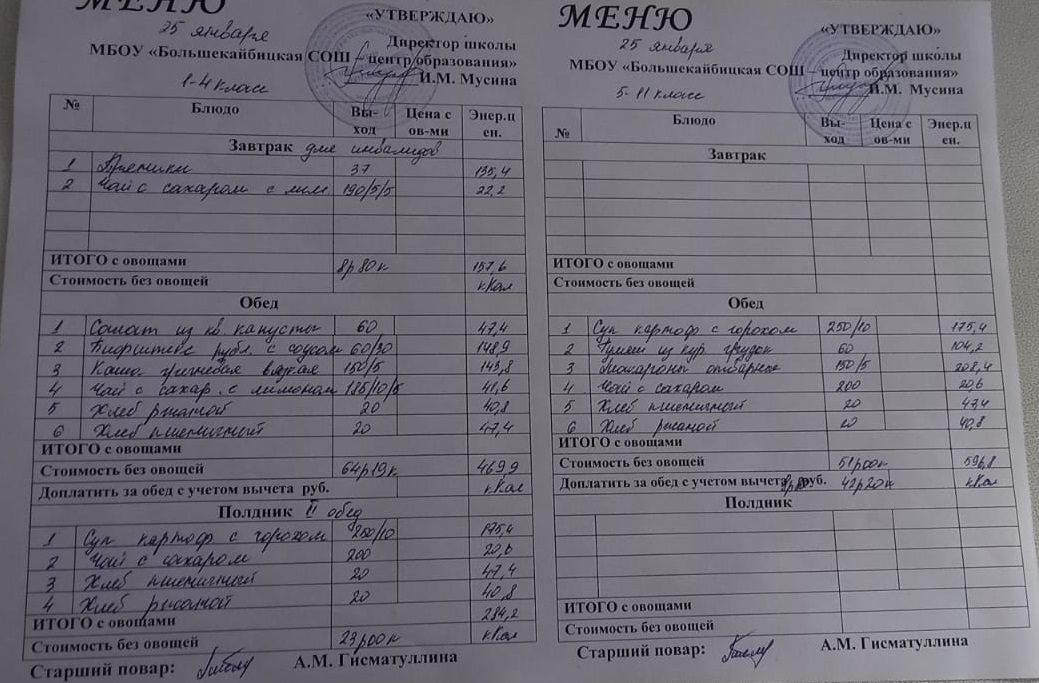 МЕНЮ
25 января
«УТВЕРЖДАЮ»
Директор школы
МБОУ «Большекайбицкая СОШ – центр образования»
И.М. Мусина
1-4 класс
№ Блюдо Вы-ход Цена с ов-ми Энер.ц ен.
Завтрак для инвалидов
1 Пряники 37 135,4
2 Чай с сахаром с лим 190/5/5 22,2
ИТОГО с овощами 8р 80к 157,6
Стоимость без овощей кКал
Обед
1 Салат из кв. капусты 60 47,4
2 Бифштекс рубл. с соусом 60/30 148,9
3 Каша гречневая вязкая 150/5 143,8
4 Чай с сахар. с лимоном 185/10/5 41,6
5 Хлеб ржаной 20 40,8
6 Хлеб пшеничный 20 47,4
ИТОГО с овощами
Стоимость без овощей 64р19к 469,9
Доплатить за обед с учетом вычета руб. кКал
Полдник II обед
1 Суп картоф с горохом 250/10 175,4
2 Чай с сахаром 200 20,6
3 Хлеб пшеничный 20 47,4
4 Хлеб ржаной 20 40,8
ИТОГО с овощами 284,2
Стоимость без овощей 23р00к кКал
Старший повар: А.М. Гисматуллина
МЕНЮ
25 января
«УТВЕРЖДАЮ»
Директор школы
МБОУ «Большекайбицкая СОШ – центр образования»
И.М. Мусина
5-11 класс
№ Блюдо Вы-ход Цена с ов-ми Энер.ц ен.
Завтрак
ИТОГО с овощами
Стоимость без овощей
Обед
1 Суп картоф с горохом 250/10 175,4
2 Гуляш из кур грудок 60 104,2
3 Макароны отварные 150/5 208,4
4 Чай с сахаром 200 20,6
5 Хлеб пшеничный 20 47,4
6 Хлеб ржаной 20 40,8
ИТОГО с овощами
Стоимость без овощей 51р00к 596,8
Доплатить за обед с учетом вычета руб. 42р20к кКал
Полдник
ИТОГО с овощами
Стоимость без овощей
Старший повар: А.М. Гисматуллина